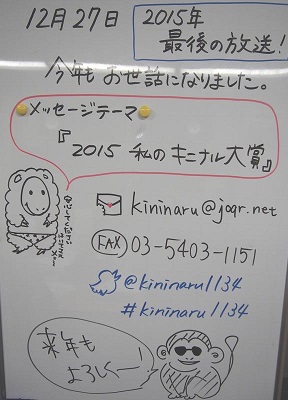 12月27日
2015年
最後の放送!
今年もお世話になりました。
メッセージテーマ
『2015 私のキニナル大賞』
kininaru@joqr.net
FAX 03-5403-1151
@kininaru1134
#kininaru1134
来年も
よろしくー!